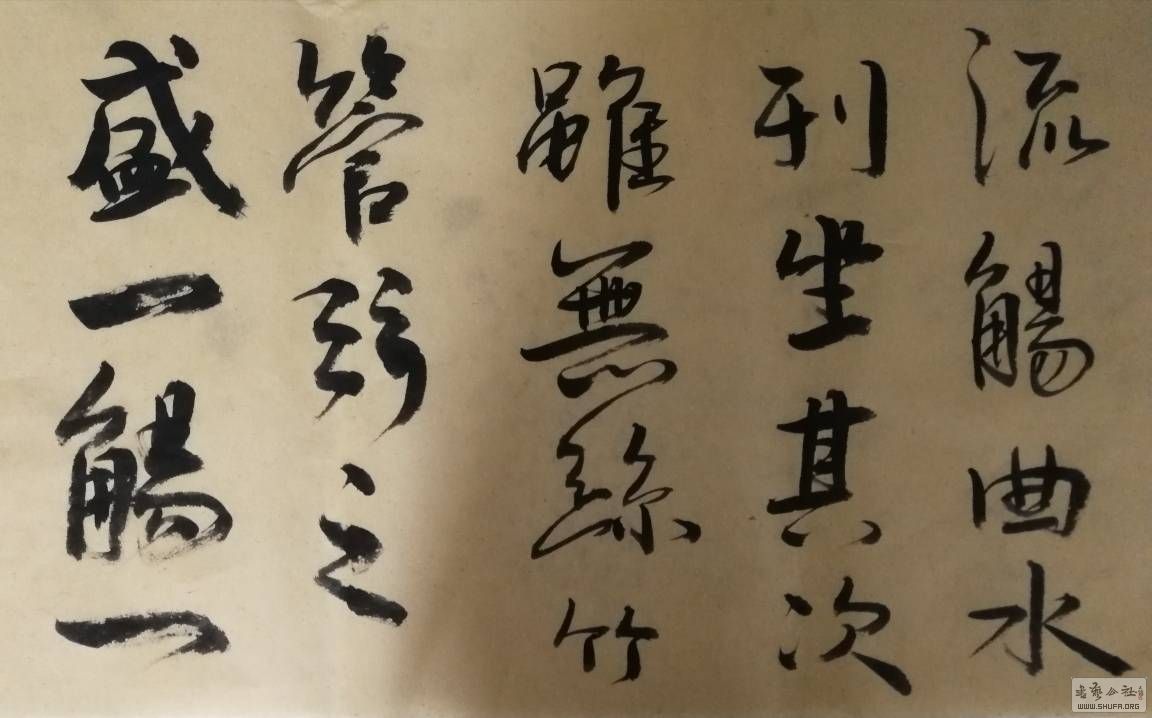 流觴曲水
列坐其次
雖無絲竹
管弦之
盛一觴一
書藝公社
WWW.SHUFA.ORG